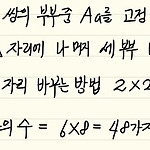 쌍의 부부중 Aa를 고정
자리에 나머지 세 부부
자리 바꾸는 방법 2×2
의 수 = 6×8 = 48가지